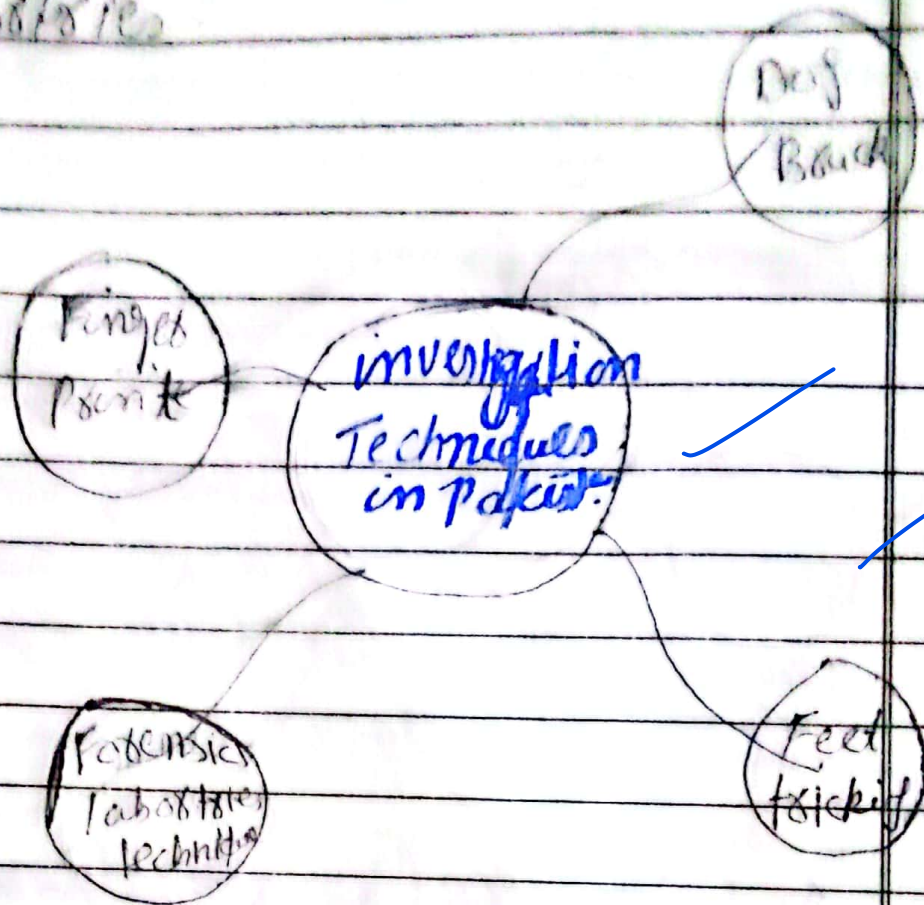 Finger
Prints
investigation
Techniques
in Pakist.
Forensic
labortries
techniques
Feet
tricking